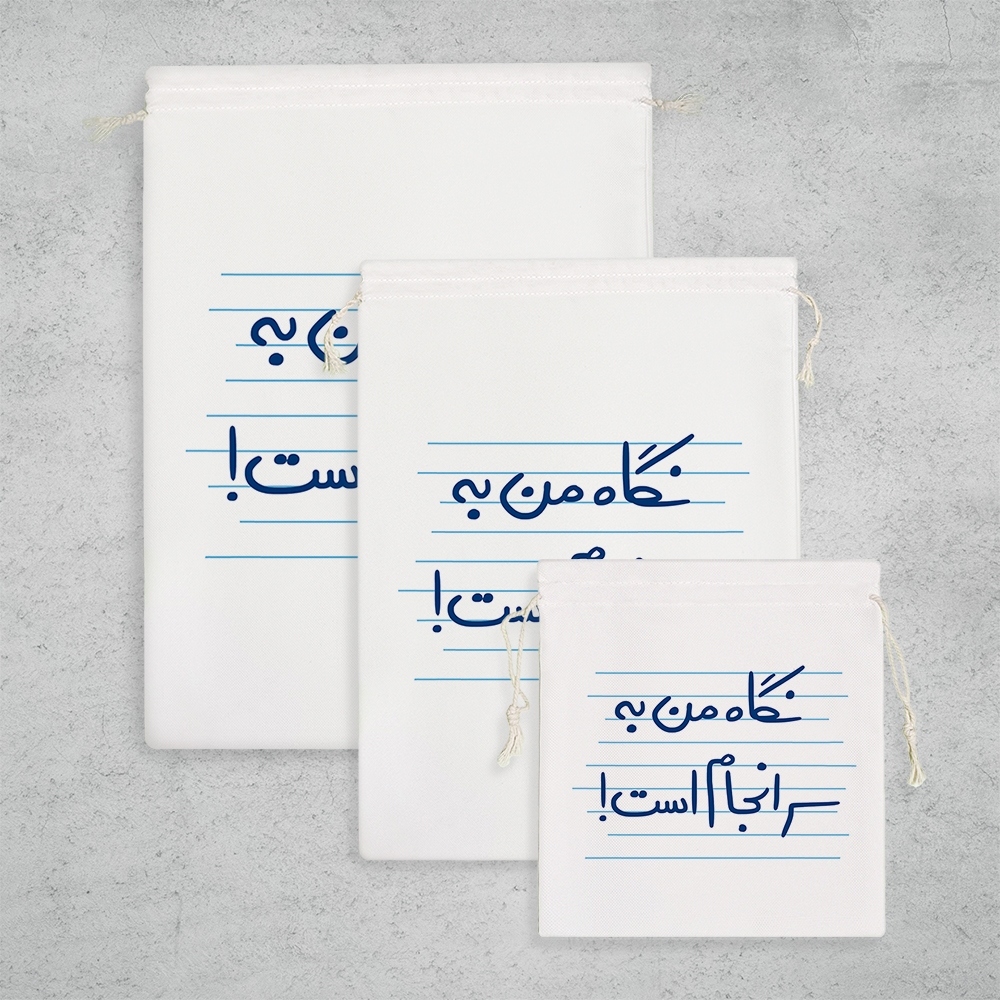 نگاه من به
ست!
نگاه من به
ست!
نگاه من به
سرانجام است!